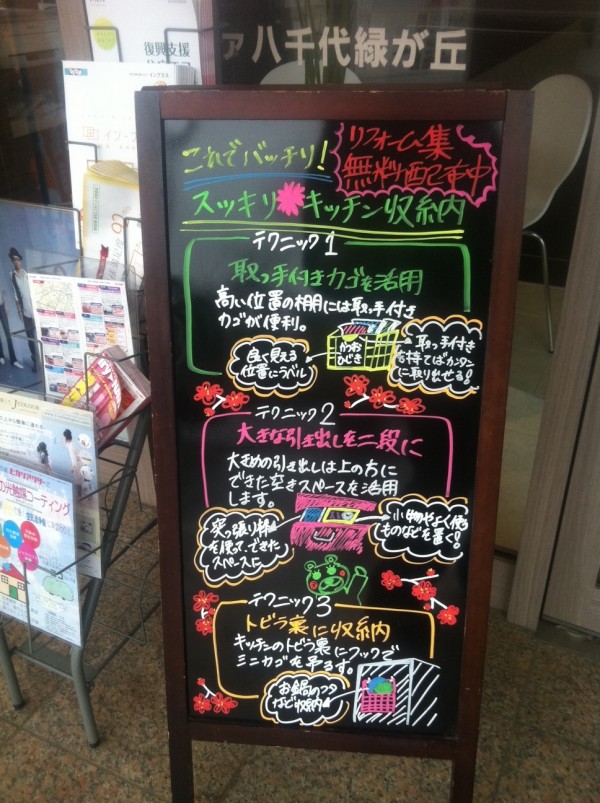 復興支援
ァ八千代緑が丘
これでバッチリ!
リフォーム集
無料配布中
スッキリ キッチン収納
テクニック1
取っ手付きカゴを活用
高い位置の棚には取っ手付き
カゴが便利。
良く見える
位置にラベル
かつお
ひじき
取っ手付き
を持てばカンタン
に取り出せる!
テクニック2
大きな引き出しを二段に
大きめの引き出しは上の方に
できた空きスペースを活用
します。
突っ張り棒
を使って、できた
スペースに
小物やよく使う
ものなどを置く!
テクニック3
トビラ裏に収納
キッチンのトビラ裏にフックで
ミニカゴを吊るす。
お鍋のフタ
など収納
の光触媒コーティング